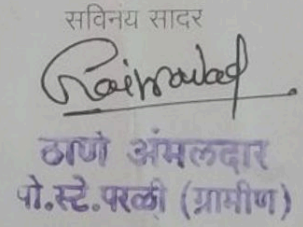 सविनय सादर
ठाणे अंमलदार
पो.स्टे.परळी (ग्रामीण)